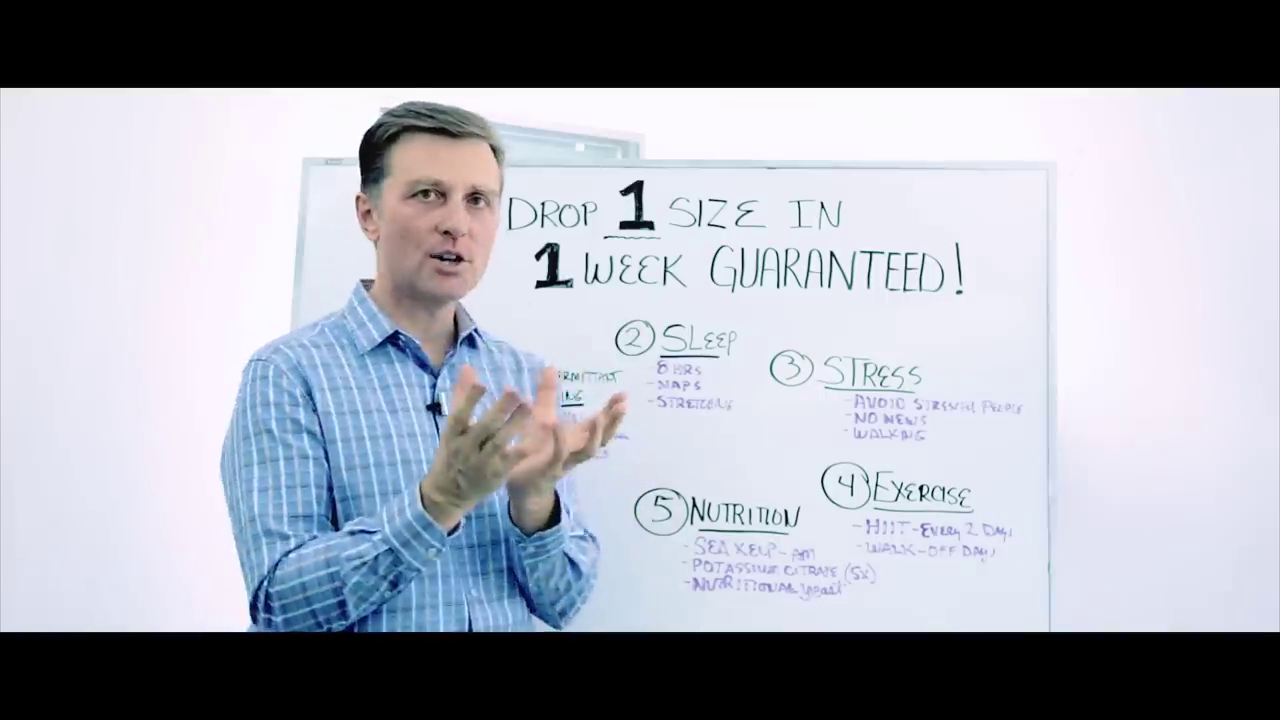 DROP 1 SIZE IN
1 WEEK GUARANTEED!
② SLEEP
- 8 HRS
- NAPS
- STRETCHING
③ STRESS
- AVOID STRESSFUL PEOPLE
- NO NEWS
- WALKING
④ EXERCISE
- HIIT - EVERY 2 DAYS
- WALK - OFF DAYS
⑤ NUTRITION
- SEA KELP - AM
- POTASSIUM CITRATE (5x)
- NUTRITIONAL yeast